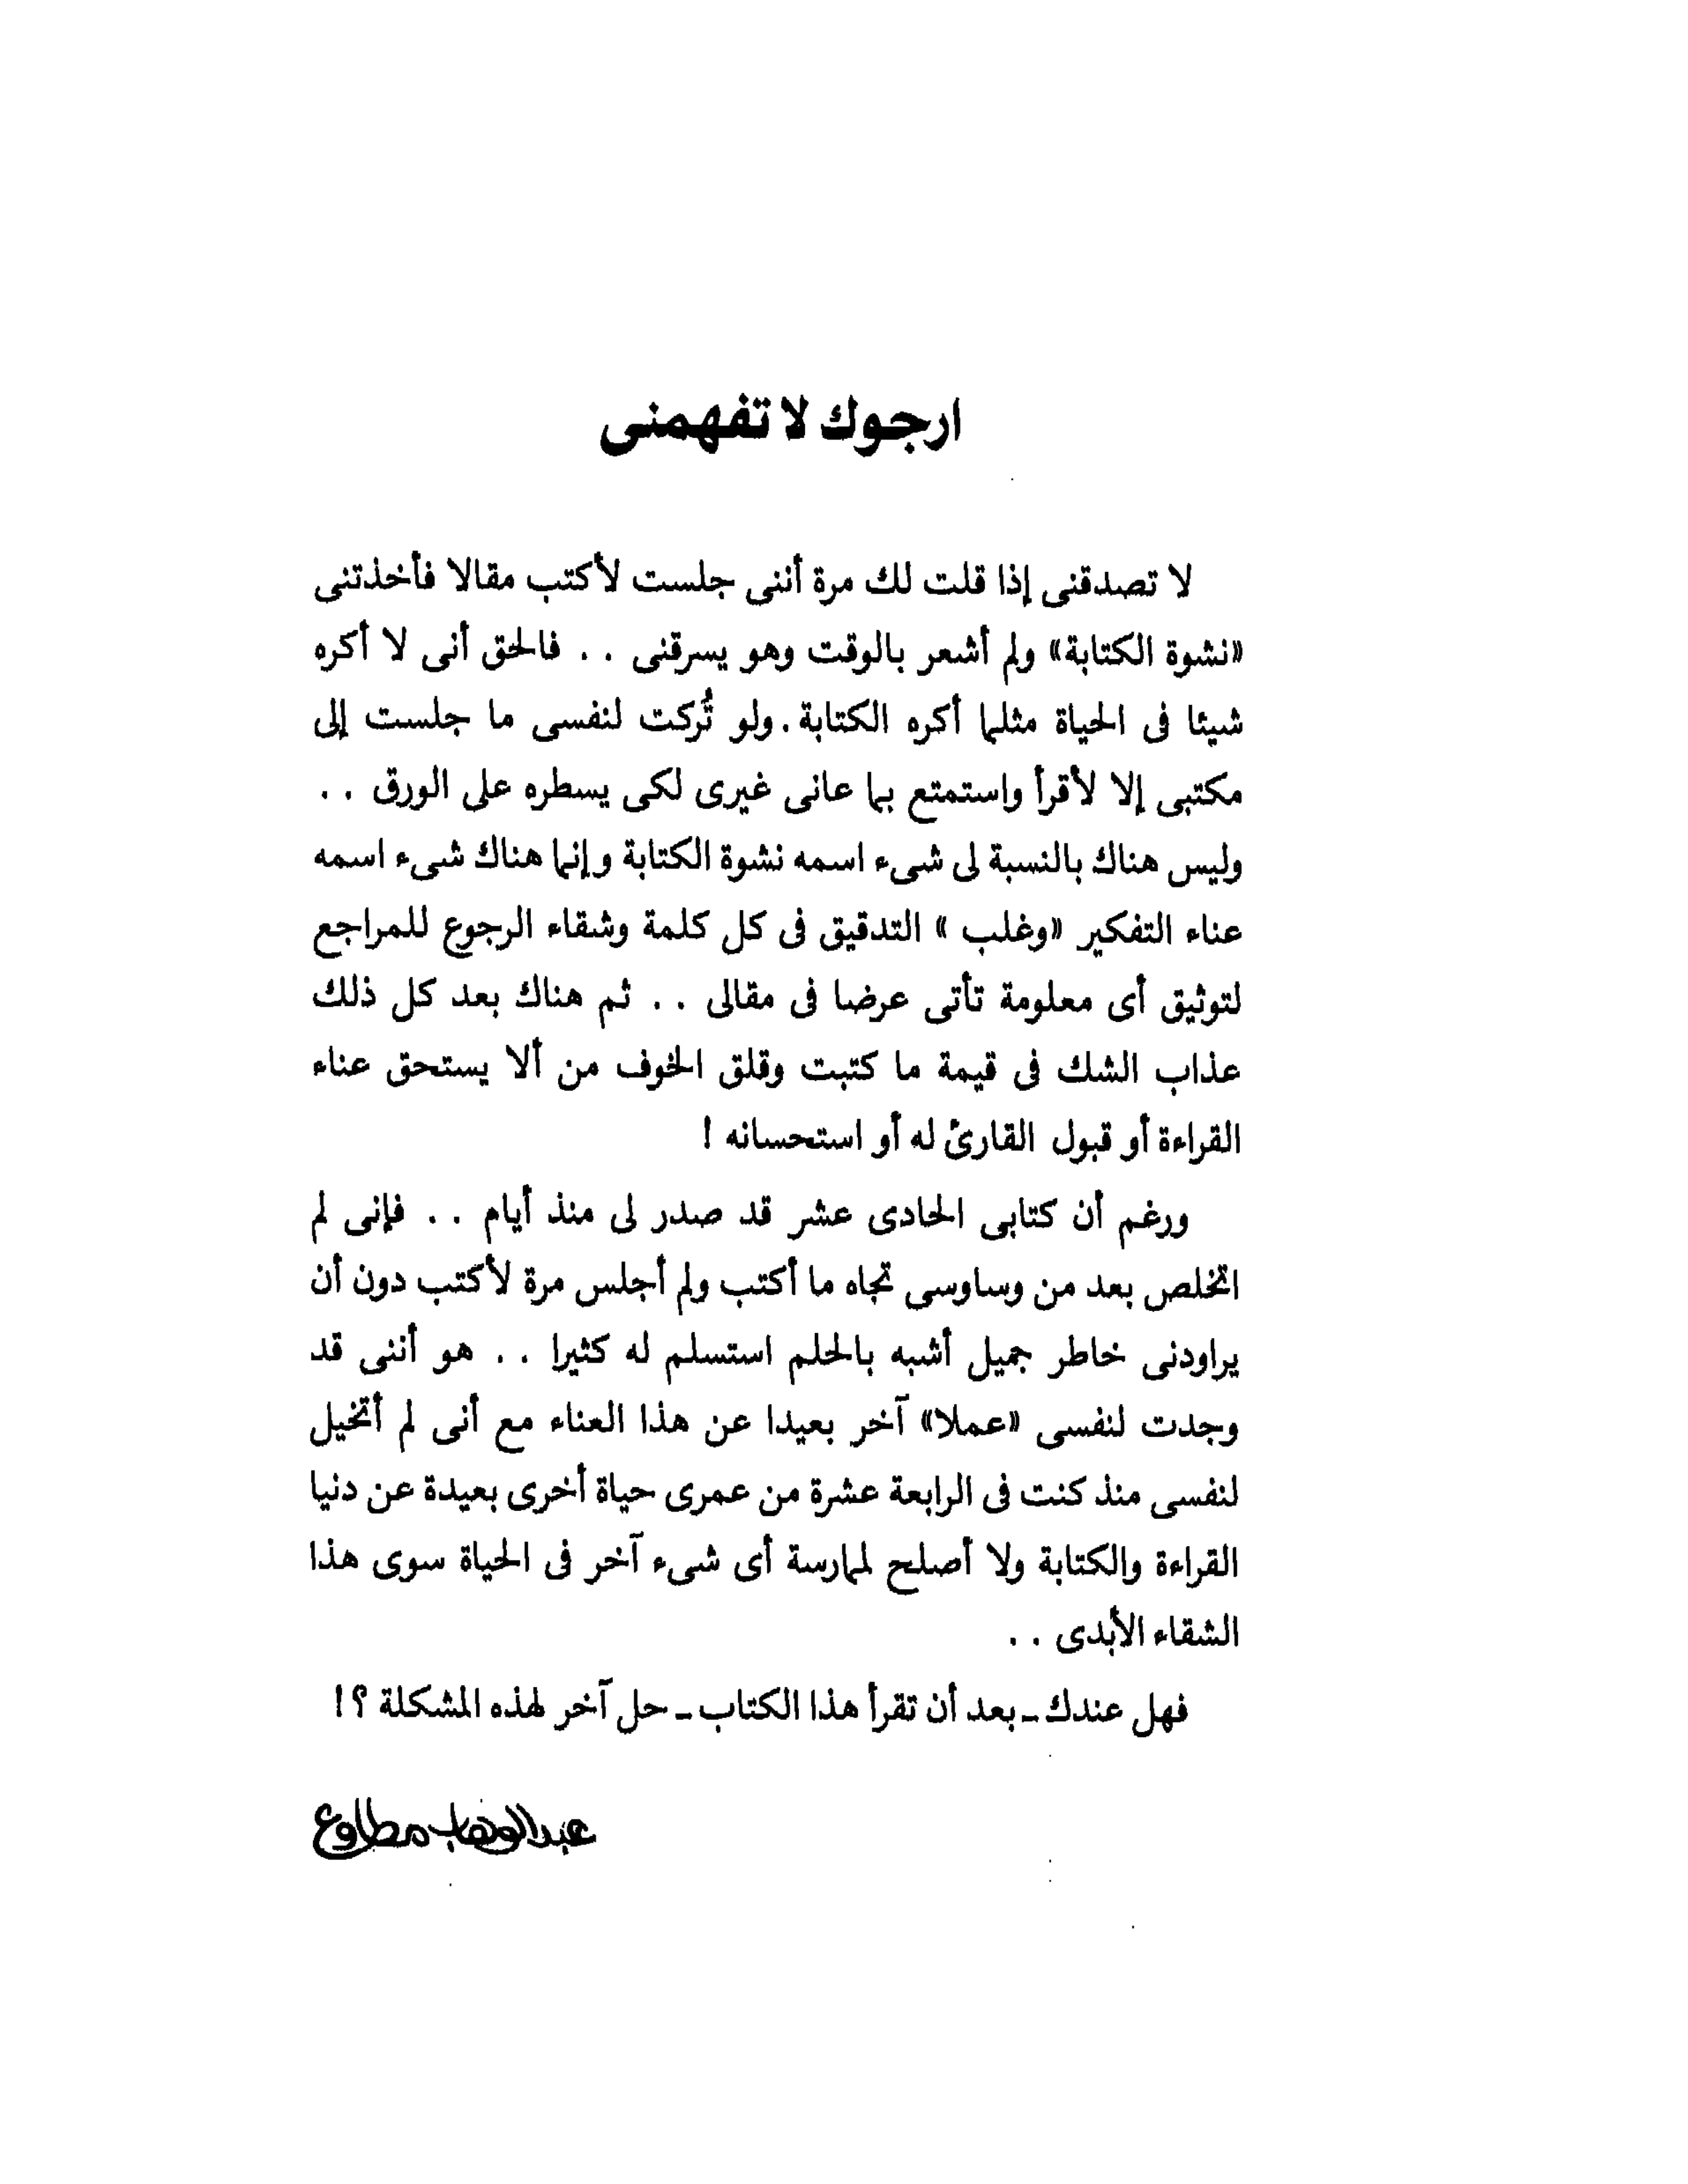 ارجوك لا تفهمنى
لا تصدقنى إذا قلت لك مرة أننى جلست لأكتب مقالا فأخذتنى
«نشوة الكتابة» ولم أشعر بالوقت وهو يسرقنى . . فالحق أنى لا أكره
شيئا فى الحياة مثلما أكره الكتابة . ولو تُركت لنفسى ما جلست إلى
مكتبى إلا لأقرأ واستمتع بما عانى غيرى لكى يسطره على الورق . .
وليس هناك بالنسبة لى شىء اسمه نشوة الكتابة وإنما هناك شىء اسمه
عناء التفكير «وغلب » التدقيق فى كل كلمة وشقاء الرجوع للمراجع
لتوثيق أى معلومة تأتى عرضا فى مقالى . . ثم هناك بعد كل ذلك
عذاب الشك فى قيمة ما كتبت وقلق الخوف من ألا يستحق عناء
القراءة أو قبول القارئ له أو استحسانه !
ورغم أن كتابى الحادى عشر قد صدر لى منذ أيام . . فإنى لم
اتخلص بعد من وساوسى تجاه ما أكتب ولم أجلس مرة لأكتب دون أن
يراودنى خاطر جميل أشبه بالحلم استسلم له كثيرا . . هو أننى قد
وجدت لنفسى «عملا» آخر بعيدا عن هذا العناء مع أنى لم أتخيل
لنفسى منذ كنت فى الرابعة عشرة من عمرى حياة أخرى بعيدة عن دنيا
القراءة والكتابة ولا أصلح لممارسة أى شىء آخر فى الحياة سوى هذا
الشقاء الأبدى . .
فهل عندك ـ بعد أن تقرأ هذا الكتاب ـ حل آخر لهذه المشكلة ؟ !
عبد الوهاب مطاوع